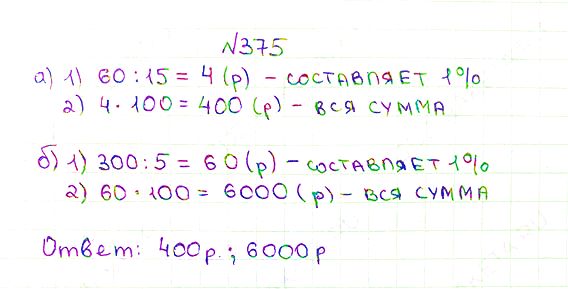 №375
а) 1) 60 : 15 = 4 (р) – составляет 1%
2) 4 · 100 = 400 (р) – вся сумма
б) 1) 300 : 5 = 60 (р) – составляет 1%
2) 60 · 100 = 6000 (р) – вся сумма
Ответ: 400р. ; 6000р